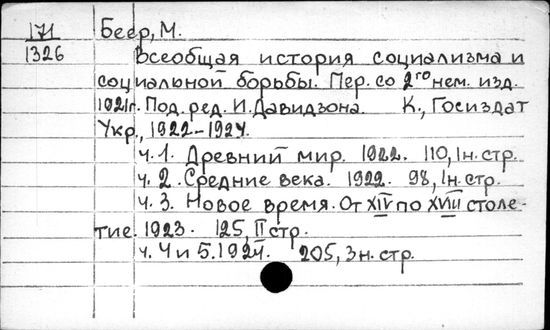 171 Беер, М.
1326 Всеобщая история социализма и
социальной борьбы. Пер. со 2го нем. изд.
1921г. Под. ред. И. Давидзона. К., Госиздат
Укр., 1922-1924.
ч. 1. Древний мир. 1922. 110, 1н. стр.
ч. 2. Средние века. 1922. 98, 1н. стр.
ч. 3. Новое время. От XIV по XVIII столе-
тие. 1923. 125, II стр.
ч. 4 и 5. 1924. 205, 3н. стр.